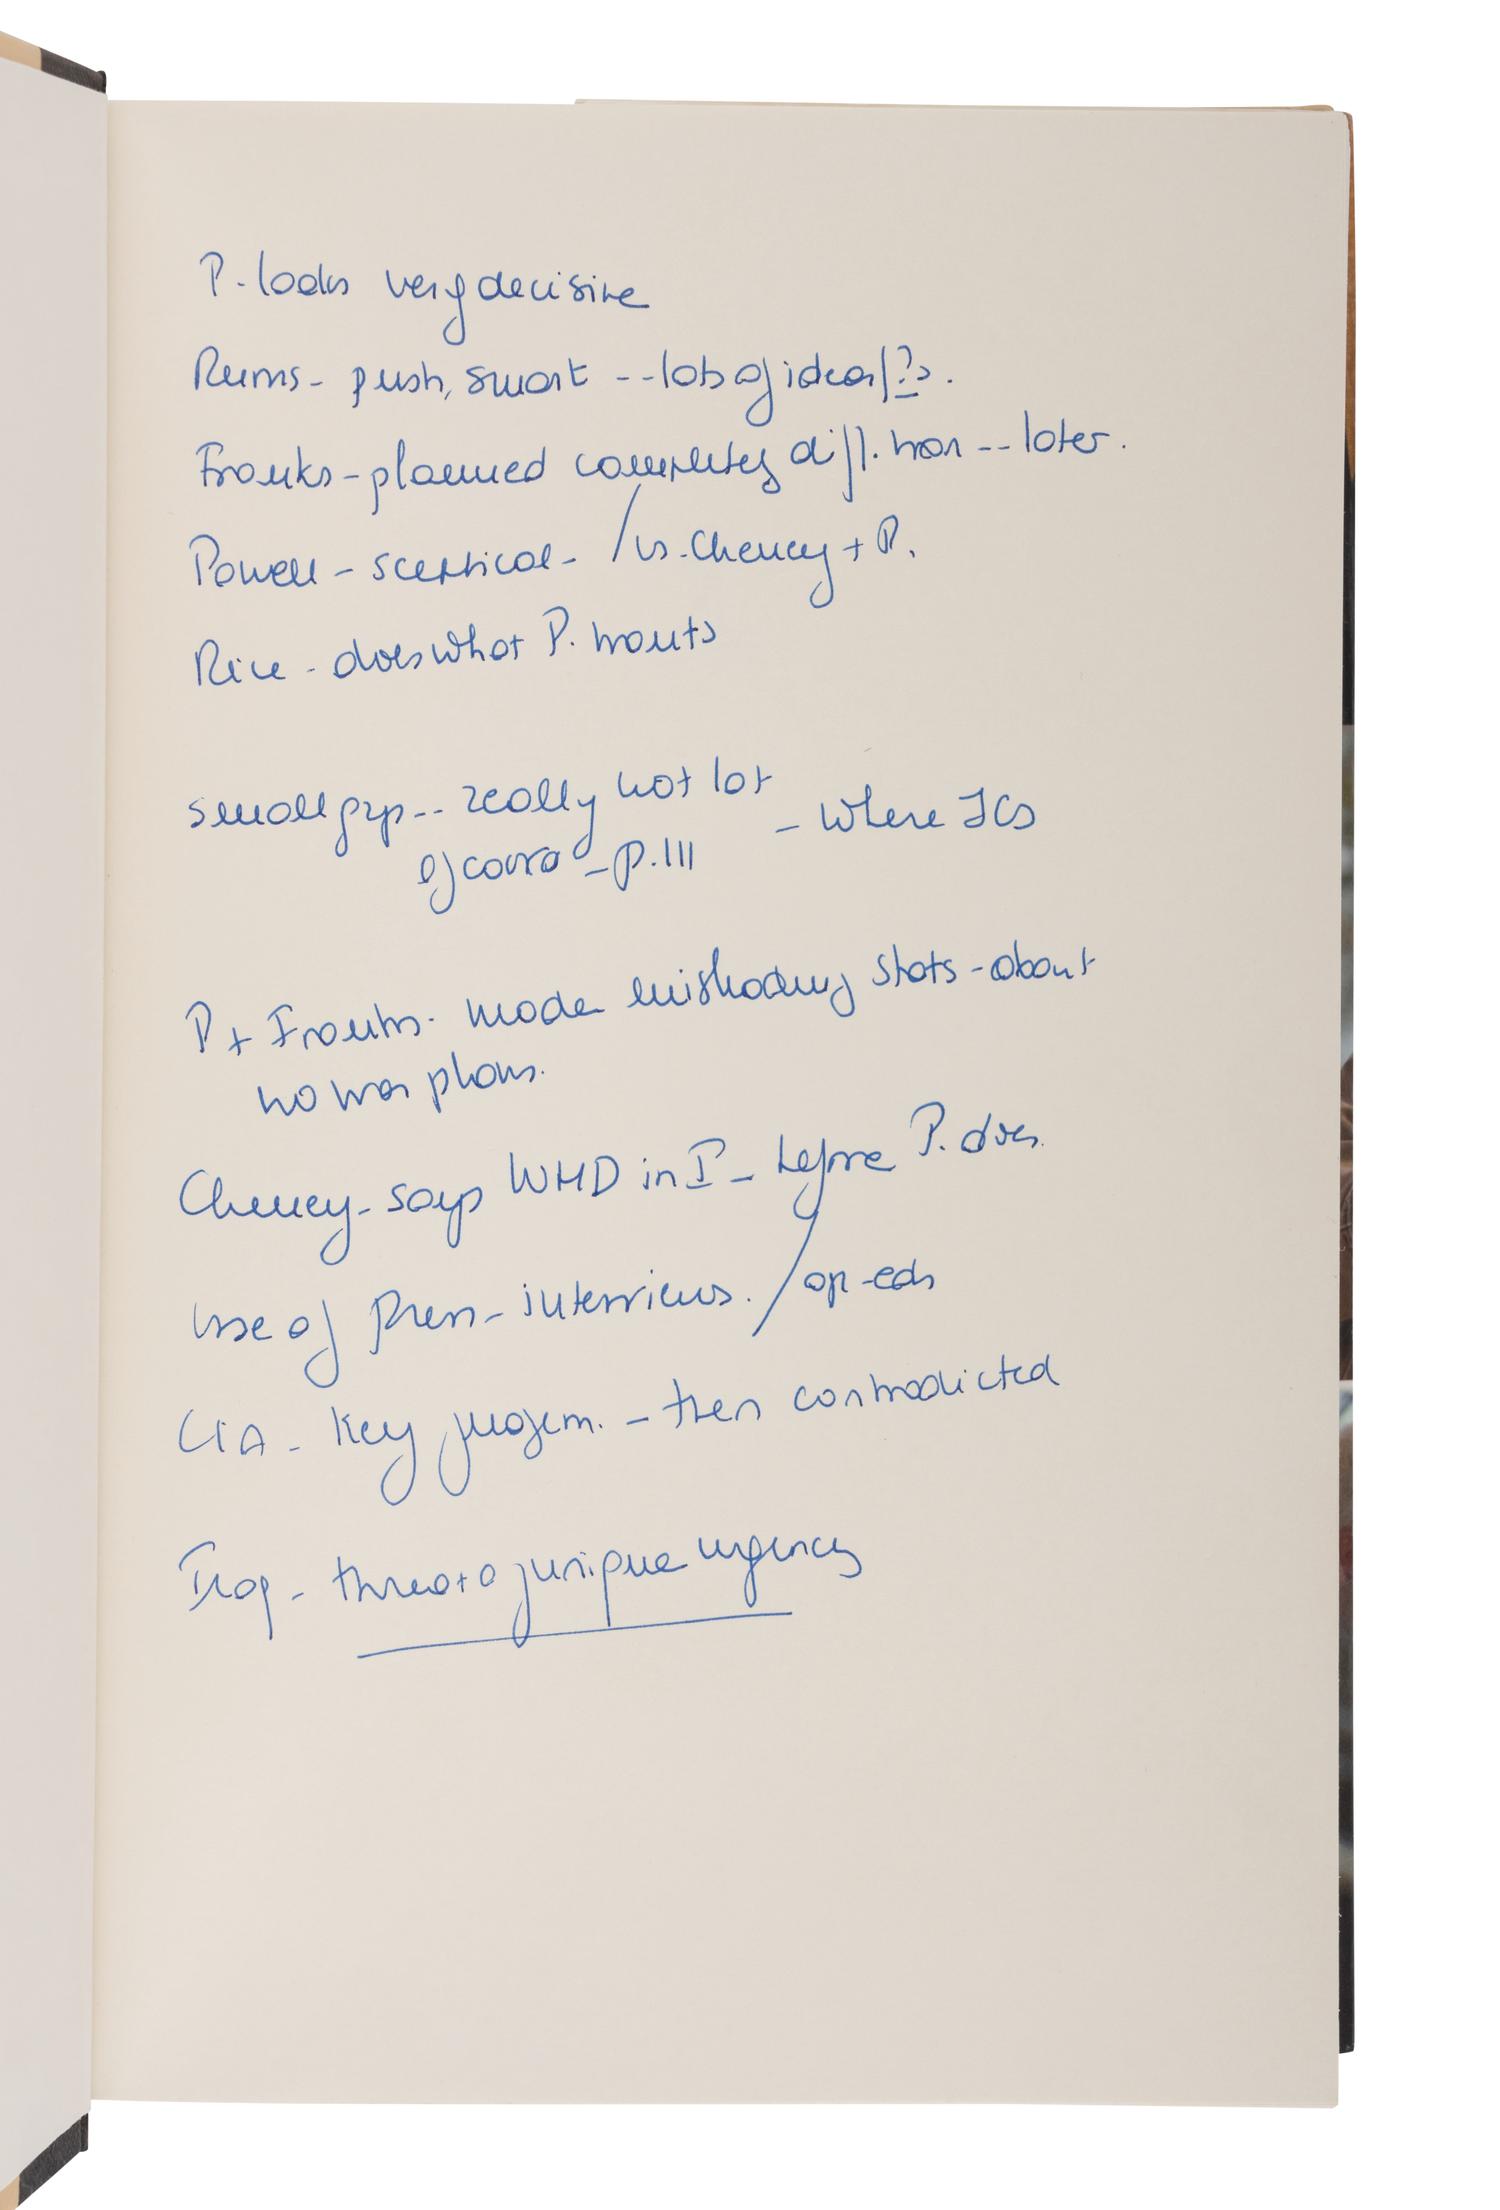 P. looks very decisive
Rums - push, smart -- lots of ideas/?s.
Franks - planned completely diff. war -- later.
Powell - sceptical - / vs. Cheney + P.
Rice - does what P. wants
small grp -- really not lot
of coord - p. 111 - where JCS
P + Franks - made misleading stats - about
no war plans.
Cheney - says WMD in I - before P. does.
Use of press - interviews. / op-eds
CIA - Key judgem. - then contradicted
Iraq - threat of unique urgency